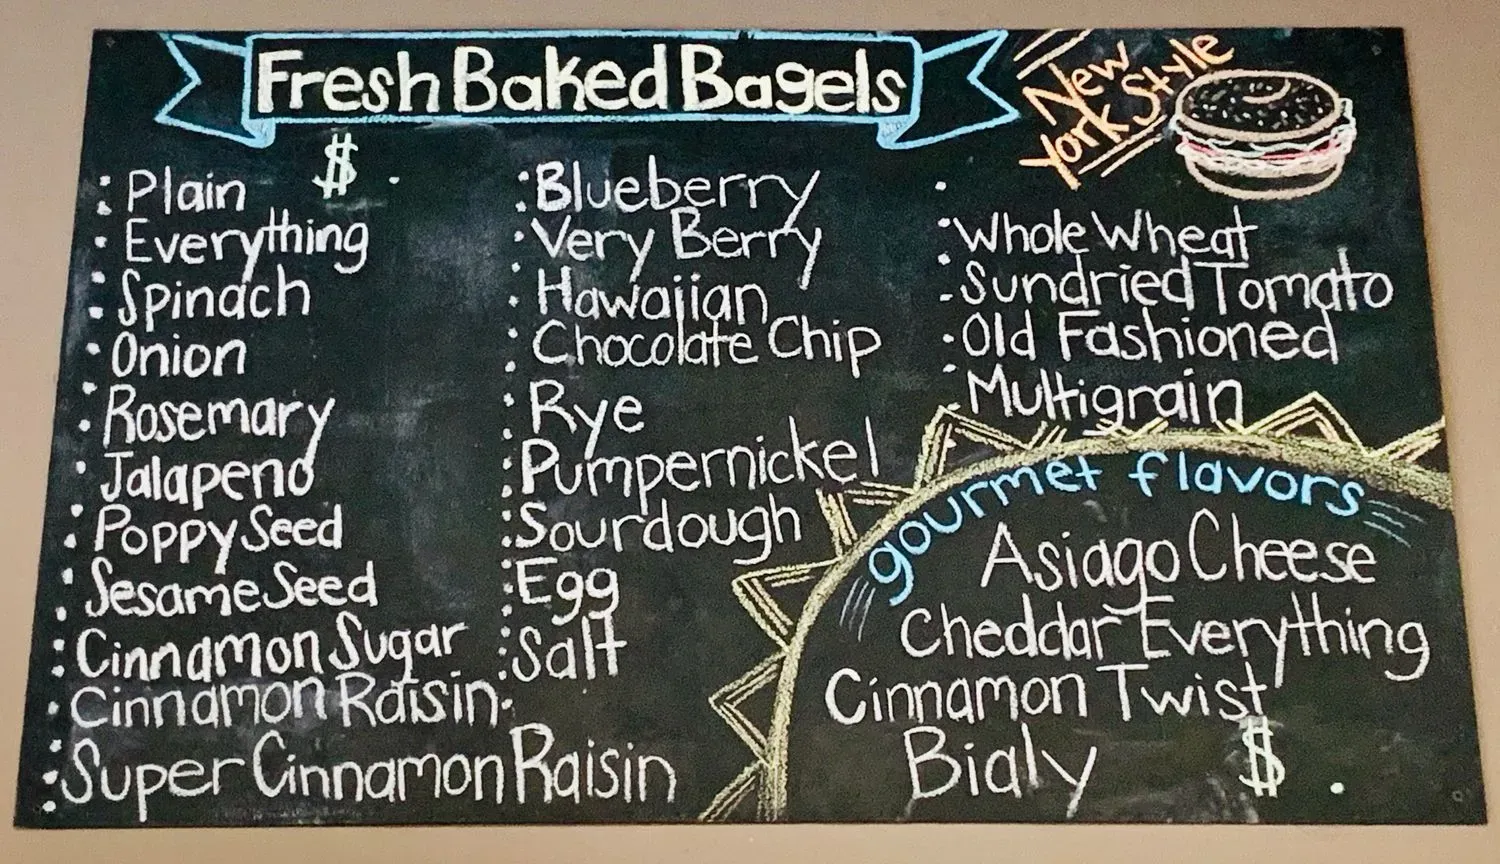 Fresh Baked Bagels
New
York Style
$ .
Plain
Everything
Spinach
Onion
Rosemary
Jalapeno
Poppy Seed
Sesame Seed
Cinnamon Sugar
Cinnamon Raisin
Super Cinnamon Raisin
Blueberry
Very Berry
Hawaiian
Chocolate Chip
Rye
Pumpernickel
Sourdough
Egg
Salt
Whole Wheat
Sundried Tomato
Old Fashioned
Multigrain
gourmet flavors
Asiago Cheese
Cheddar Everything
Cinnamon Twist
Bialy $ .